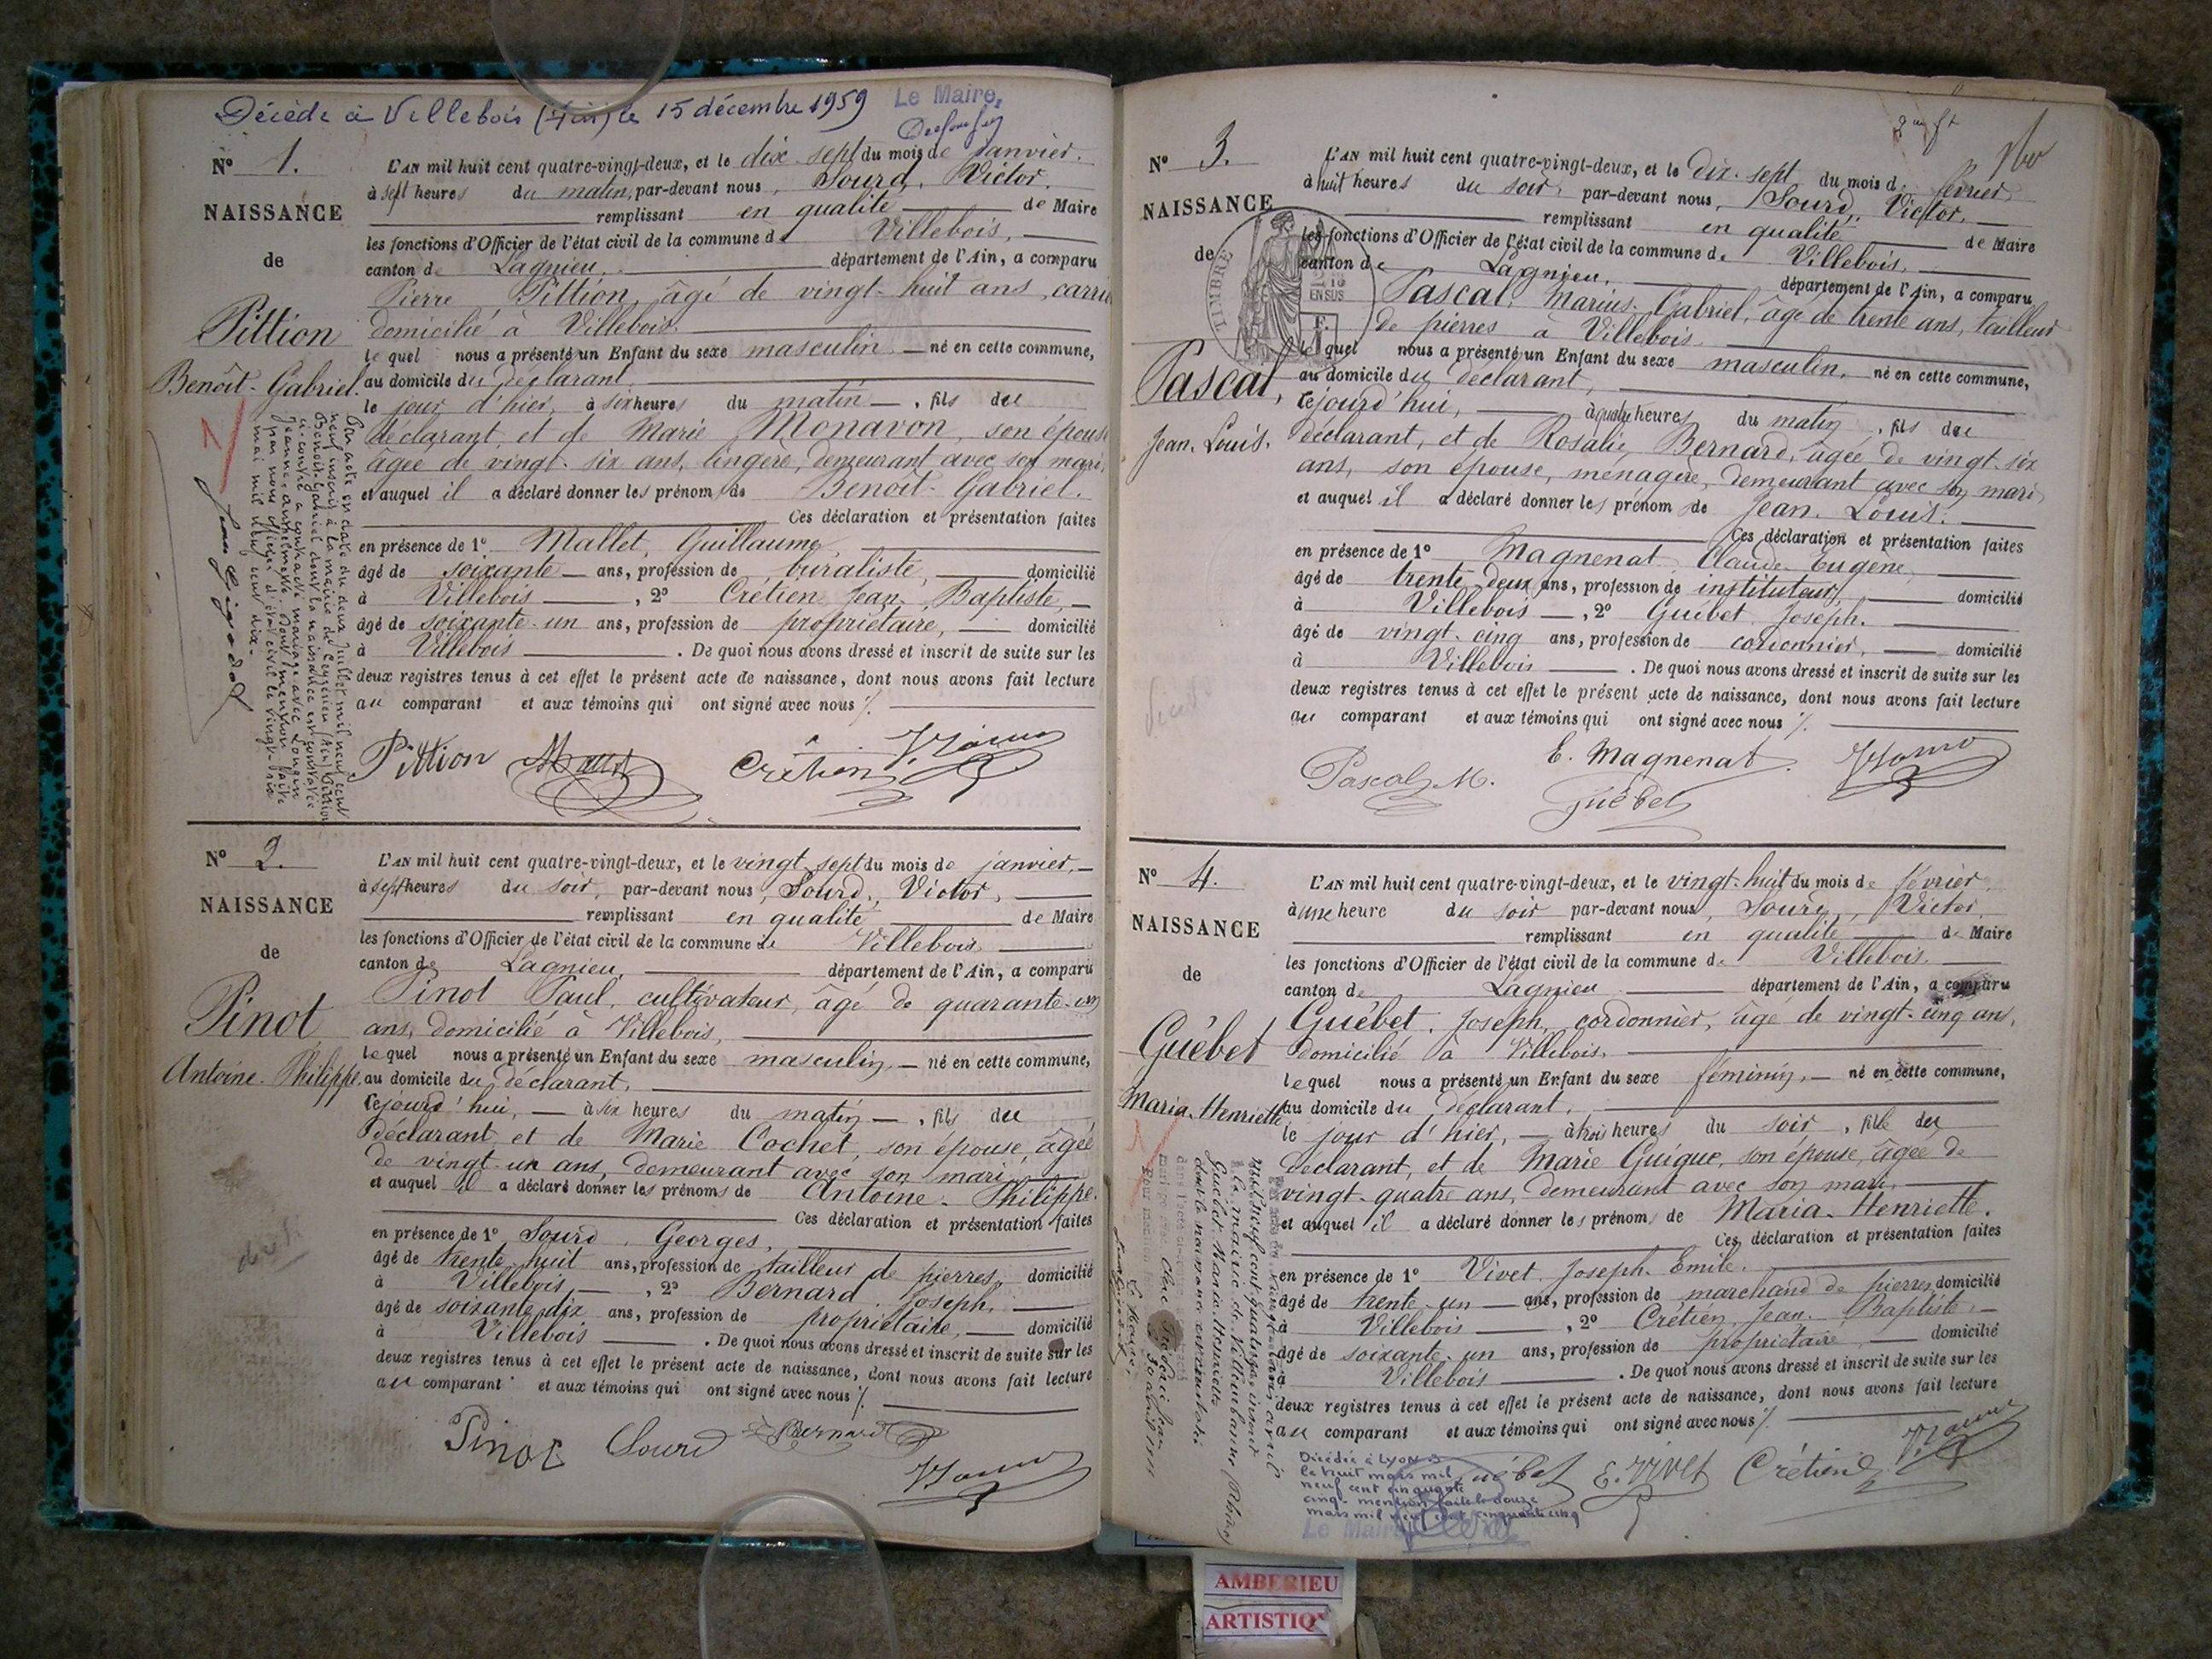 Décédé à Villebois (Ain) le 15 décembre 1959 Le Maire,
N° 1.
NAISSANCE
de
Pittion
Benoît-Gabriel.
L'AN mil huit cent quatre-vingt-deux, et le dix-sept du mois de Janvier.
à sept heures du matin, par-devant nous, Sourd, Victor,
remplissant en qualité de Maire
les fonctions d'Officier de l'état civil de la commune de Villebois,
canton de Lagnieu, département de l'Ain, a comparu
Pierre Pittion, âgé de vingt-huit ans,
domicilié à Villebois.
lequel nous a présenté un Enfant du sexe masculin né en cette commune,
au domicile du déclarant,
le jour d'hier, à six heures du matin, fils du
déclarant, et de Marie Monavon, son épouse
âgée de vingt-six ans, lingère, demeurant avec son mari,
et auquel il a déclaré donner les prénoms de Benoît-Gabriel.
Ces déclaration et présentation faites
en présence de 1° Mallet, Guillaume,
âgé de soixante ans, profession de buraliste, domicilié
à Villebois, 2° Crétien Jean-Baptiste,
âgé de soixante-un ans, profession de propriétaire, domicilié
à Villebois. De quoi nous avons dressé et inscrit de suite sur les
deux registres tenus à cet effet le présent acte de naissance, dont nous avons fait lecture
au comparant et aux témoins qui ont signé avec nous ./.
Pittion Crétien
Par acte en date du deux juillet mil neuf cent
neuf inscrit à la mairie de (Ain) Pittion
Benoît-Gabriel dont la naissance est constatée
ci-contre a contracté mariage avec
Jeanne, dont mention faite
par nous officier d'état civil le vingt-
mai mil neuf cent dix.
N° 2.
NAISSANCE
de
Pinot
Antoine-Philippe.
L'AN mil huit cent quatre-vingt-deux, et le vingt-sept du mois de janvier,
à sept heures du soir, par-devant nous, Sourd, Victor,
remplissant en qualité de Maire
les fonctions d'Officier de l'état civil de la commune de Villebois
canton de Lagnieu, département de l'Ain, a comparu
Pinot Paul, cultivateur, âgé de quarante-un
ans, domicilié à Villebois,
lequel nous a présenté un Enfant du sexe masculin, né en cette commune,
au domicile du déclarant,
cejourd'hui, à six heures du matin, fils du
déclarant, et de Marie Cochet, son épouse, âgée
de vingt-un ans, demeurant avec son mari,
et auquel il a déclaré donner les prénoms de Antoine-Philippe.
Ces déclaration et présentation faites
en présence de 1° Sourd, Georges,
âgé de trente-huit ans, profession de tailleur de pierres, domicilié
à Villebois, 2° Bernard, Joseph,
âgé de soixante-dix ans, profession de propriétaire, domicilié
à Villebois. De quoi nous avons dressé et inscrit de suite sur les
deux registres tenus à cet effet le présent acte de naissance, dont nous avons fait lecture
au comparant et aux témoins qui ont signé avec nous ./.
Pinot Sourd Bernard
N° 3.
NAISSANCE
de
TIMBRE
EN SUS
Pascal,
Jean-Louis.
L'AN mil huit cent quatre-vingt-deux, et le dix-sept du mois de février,
à huit heures du soir, par-devant nous, Sourd, Victor,
remplissant en qualité de Maire
les fonctions d'Officier de l'état civil de la commune de Villebois,
canton de Lagnieu, département de l'Ain, a comparu
Pascal, Marius-Gabriel, âgé de trente ans, tailleur
de pierres à Villebois.
lequel nous a présenté un Enfant du sexe masculin, né en cette commune,
au domicile du déclarant,
cejourd'hui, à quatre heures du matin, fils du
déclarant, et de Rosalie Bernard, âgée de vingt-six
ans, son épouse, ménagère, demeurant avec son mari,
et auquel il a déclaré donner les prénoms de Jean-Louis.
Ces déclaration et présentation faites
en présence de 1° Magnenat, Claude-Eugène,
âgé de trente-deux ans, profession de instituteur, domicilié
à Villebois, 2° Guébet, Joseph.
âgé de vingt-cinq ans, profession de cordonnier, domicilié
à Villebois. De quoi nous avons dressé et inscrit de suite sur les
deux registres tenus à cet effet le présent acte de naissance, dont nous avons fait lecture
au comparant et aux témoins qui ont signé avec nous ./.
Pascal M. E. Magnenat
Guébet
N° 4.
NAISSANCE
de
Guébet
Maria-Henriette
L'AN mil huit cent quatre-vingt-deux, et le vingt-huit du mois de février,
à une heure du soir par-devant nous, Sourd, Victor,
remplissant en qualité de Maire
les fonctions d'Officier de l'état civil de la commune de Villebois.
canton de Lagnieu département de l'Ain, a comparu
Guébet, Joseph, cordonnier, âgé de vingt-cinq ans,
domicilié à Villebois,
lequel nous a présenté un Enfant du sexe féminin, né en cette commune,
au domicile du déclarant,
le jour d'hier, à trois heures du soir, fille du
déclarant, et de Marie Guigue, son épouse, âgée de
vingt-quatre ans, demeurant avec son mari,
et auquel il a déclaré donner les prénoms de Maria-Henriette.
Ces déclaration et présentation faites
en présence de 1° Vivet, Joseph-Emile.
âgé de trente-un ans, profession de marchand de pierres, domicilié
à Villebois, 2° Crétien, Jean-Baptiste,
âgé de soixante-un ans, profession de propriétaire, domicilié
à Villebois. De quoi nous avons dressé et inscrit de suite sur les
deux registres tenus à cet effet le présent acte de naissance, dont nous avons fait lecture
au comparant et aux témoins qui ont signé avec nous ./.
Guébet E. Vivet Crétien
mil neuf cent quatorze, inscrit
à la mairie de Villeurbanne (Rhône)
Guébet Maria-Henriette
Le Maire,
Décédée à Lyon 3
le huit mars mil
neuf cent cinquante
cinq. mention faite le douze
mars mil neuf cent cinquante cinq
Le Maire
AMBERIEU
ARTISTIQ